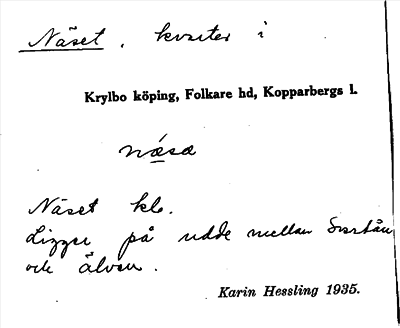 Näset, kvarter i
Krylbo köping, Folkare hd, Kopparbergs l.
næsa
Näset kb.
Ligger på udde mellan Svartån
och älven.
Karin Hessling 1935.